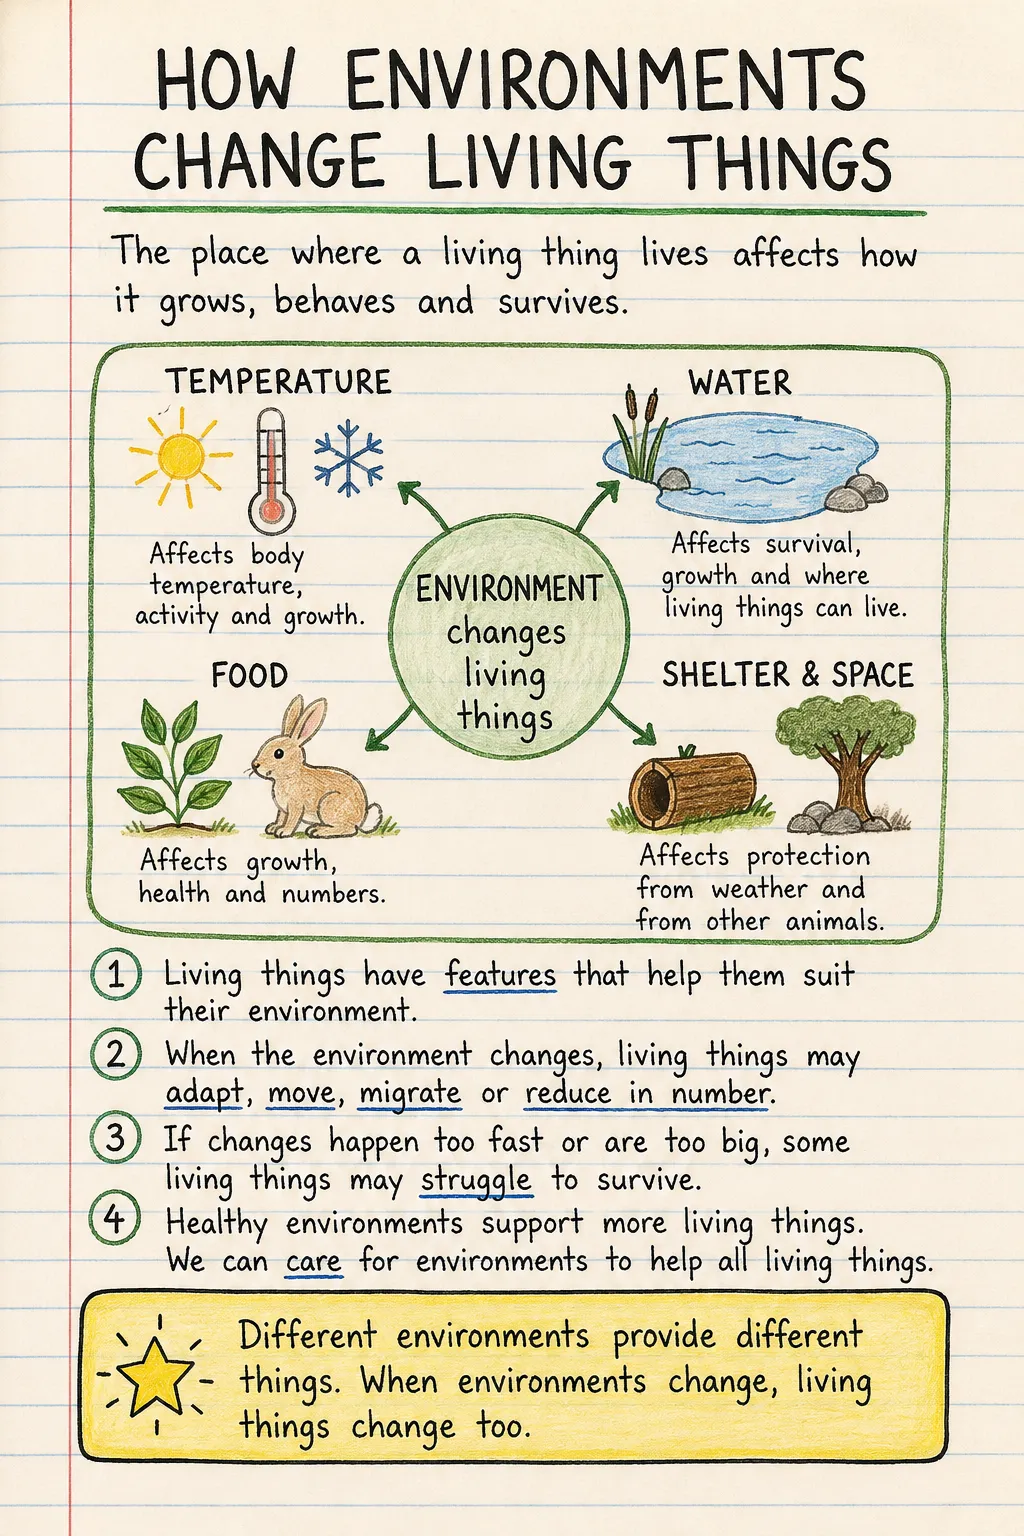 HOW ENVIRONMENTS
CHANGE LIVING THINGS
The place where a living thing lives affects how
it grows, behaves and survives.
TEMPERATURE
Affects body
temperature,
activity and growth.
WATER
Affects survival,
growth and where
living things can live.
ENVIRONMENT
changes
living
things
FOOD
Affects growth,
health and numbers.
SHELTER & SPACE
Affects protection
from weather and
from other animals.
1 Living things have features that help them suit
their environment.
2 When the environment changes, living things may
adapt, move, migrate or reduce in number.
3 If changes happen too fast or are too big, some
living things may struggle to survive.
4 Healthy environments support more living things.
We can care for environments to help all living things.
Different environments provide different
things. When environments change, living
things change too.